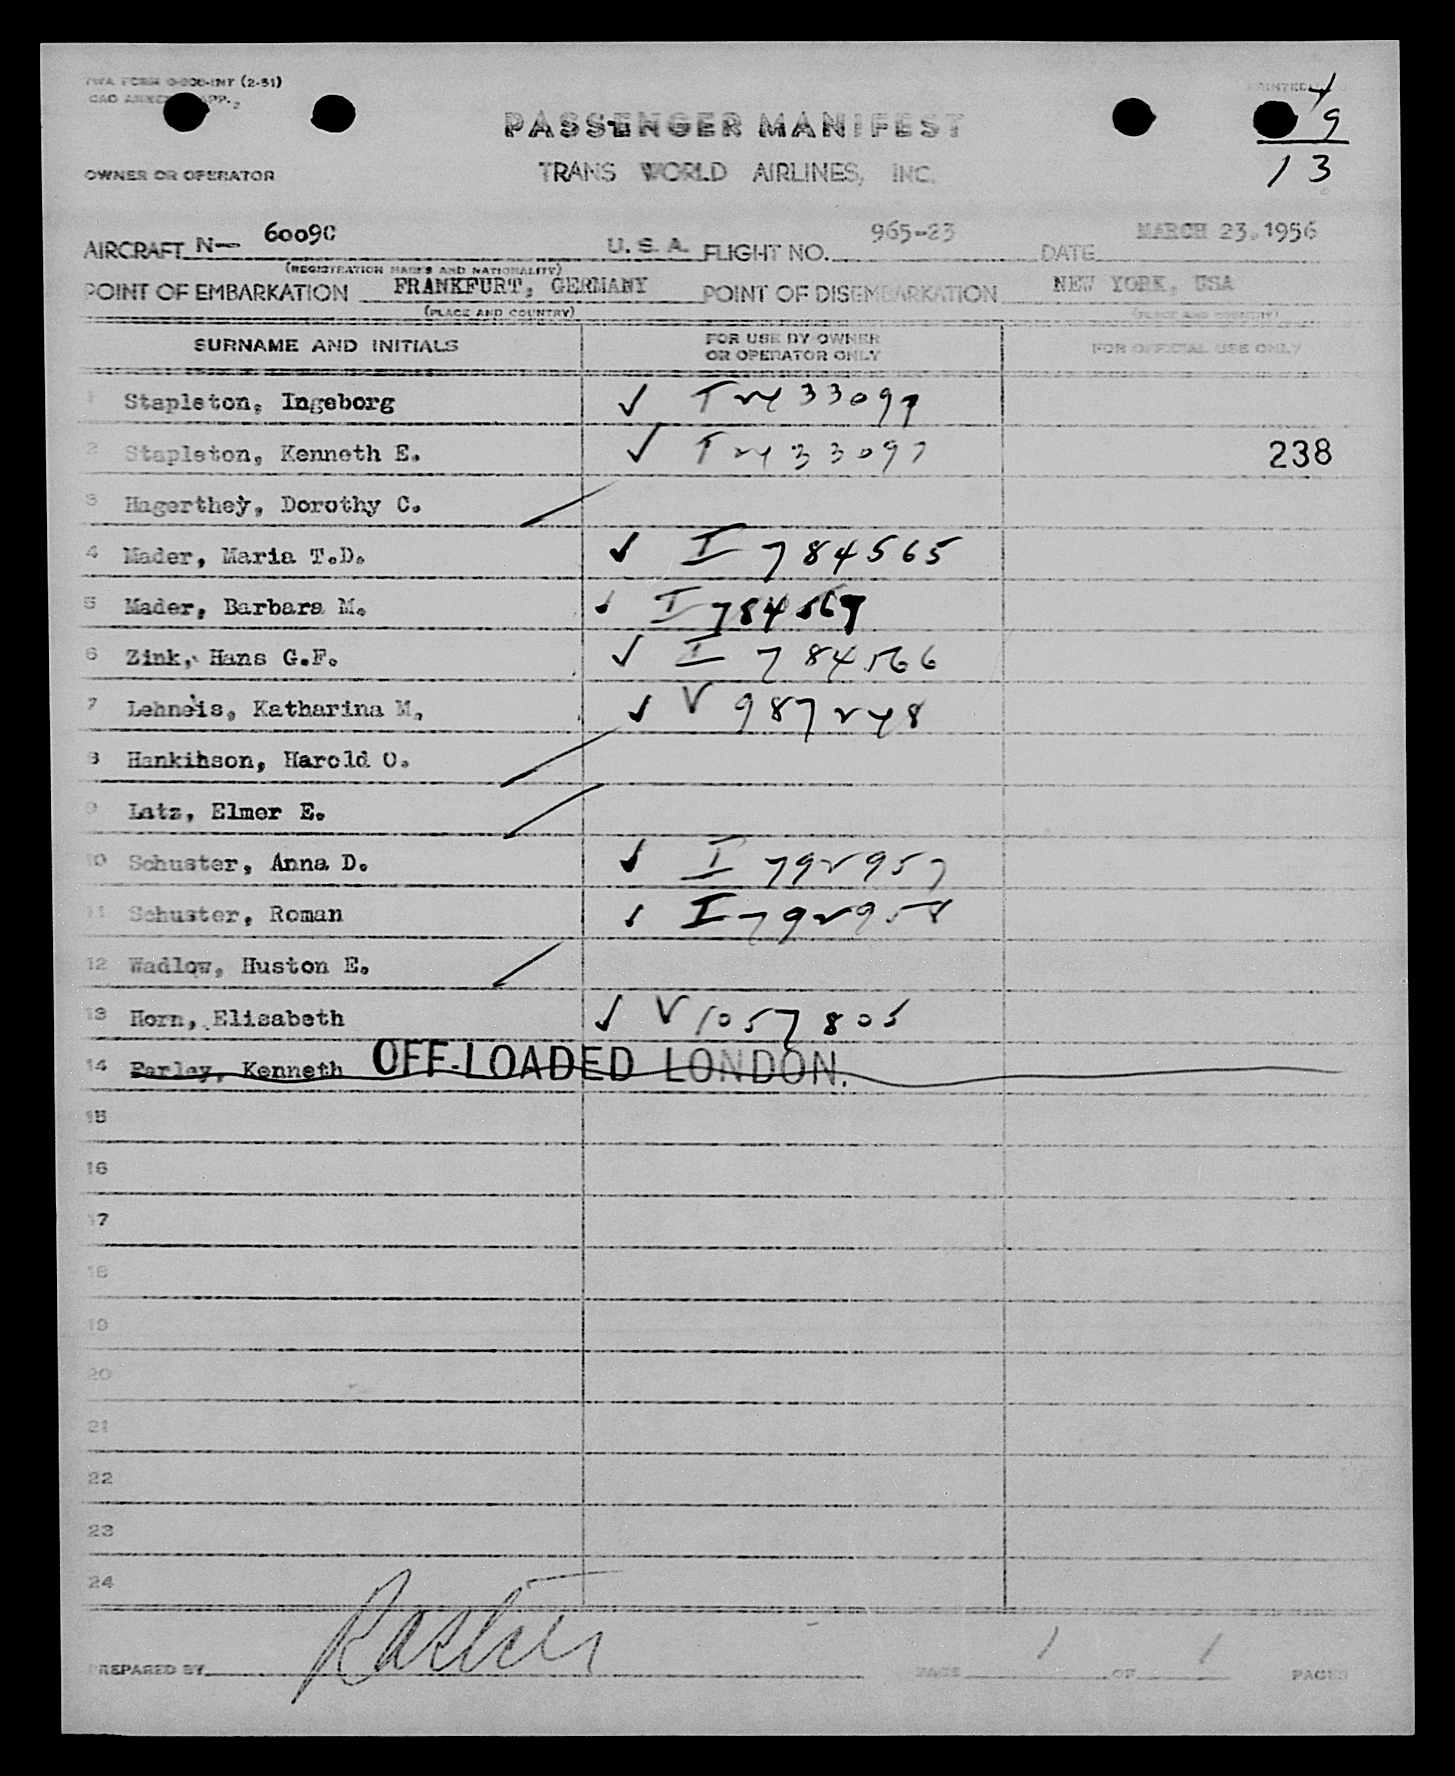 TWA FORM (2-51)
OWNER OR OPERATOR
PASSENGER MANIFEST
TRANS WORLD AIRLINES, INC.
4
9
13
AIRCRAFT N— 6009C U.S.A. FLIGHT NO. 965-23 DATE MARCH 23,1956
(REGISTRATION MARKS AND NATIONALITY)
POINT OF EMBARKATION FRANKFURT, GERMANY POINT OF DISEMBARKATION NEW YORK, USA
(PLACE AND COUNTRY) (PLACE AND COUNTRY)
SURNAME AND INITIALS FOR USE BY OWNER OR OPERATOR ONLY FOR OFFICIAL USE ONLY
1 Stapleton, Ingeborg ✓
2 Stapleton, Kenneth E. ✓ 238
3 Hagerthey, Dorothy C.
4 Mader, Maria T.D. ✓ I 784565
5 Mader, Barbara M. ✓ I 784567
6 Zink, Hans G.F. ✓ I 784566
7 Lehneis, Katharina M. ✓ V 987248
8 Hankinson, Harold O.
9 Latz, Elmer E.
10 Schuster, Anna D. ✓ I 792957
11 Schuster, Roman ✓ I 792958
12 Wadlow, Huston E.
13 Horn, Elisabeth ✓ V 1057805
14 Farley, Kenneth OFF-LOADED LONDON.
15
16
17
18
19
20
21
22
23
24
PREPARED BY PAGE 1 OF 1 PAGES